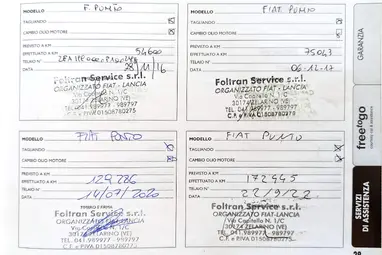 MODELLO F. PUNTO
TAGLIANDO
CAMBIO OLIO MOTORE
PREVISTO A KM
EFFETTUATO A KM 54600
TELAIO N°
DATA 28/11/16
Foltran Service s.r.l.
ORGANIZZATO FIAT - LANCIA
Via Castello N. 1/C
30174 ZELARINO (VE)
TEL. 041.989977 - 989797
C.F. e P.IVA 01508780275
MODELLO FIAT PUNTO
TAGLIANDO
CAMBIO OLIO MOTORE
PREVISTO A KM
EFFETTUATO A KM 75043
TELAIO N°
DATA 06-12-17
Foltran Service s.r.l.
ORGANIZZATO FIAT - LANCIA
Via Castello N. 1/C
30174 ZELARINO (VE)
TEL. 041.989977 - 989797
C.F. e P.IVA 01508780275
MODELLO FIAT PUNTO
TAGLIANDO
CAMBIO OLIO MOTORE
PREVISTO A KM
EFFETTUATO A KM 129236
TELAIO N°
DATA 14/07/2020
TIMBRO E FIRMA
Foltran Service s.r.l.
ORGANIZZATO FIAT-LANCIA
Via Castello N. 1/C
30174 ZELARINO (VE)
TEL. 041.989977 - 989797
C.F. e P.IVA 01508780275
MODELLO FIAT PUNTO
TAGLIANDO
CAMBIO OLIO MOTORE
PREVISTO A KM
EFFETTUATO A KM 172445
TELAIO N°
DATA 22/9/22
Foltran Service s.r.l.
ORGANIZZATO FIAT-LANCIA
Via Castello N. 1/C
30174 ZELARINO (VE)
TEL. 041.989977 - 989797
C.F. e P.IVA 01508780275
GARANZIA
freetogo
SERVIZI
DI ASSISTENZA